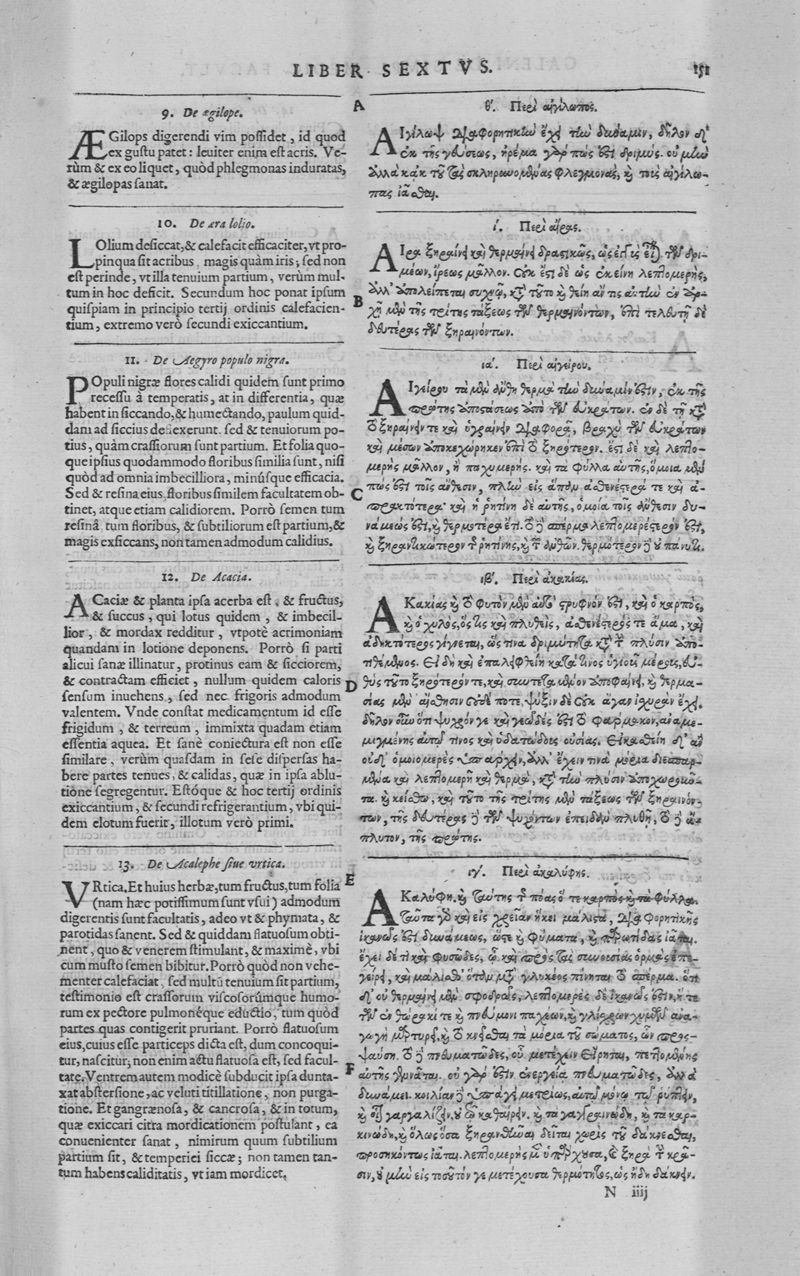 LIBER SEXTVS.
151
9. De ægilope.
ÆGilops digerendi vim possidet, id quod
ex gustu patet: leuiter enim est acris. Ve-
rùm & ex eo liquet, quòd phlegmonas induratas,
& ægilopas sanat.
10. De æra lolio.
LOlium desiccat, & calefacit efficaciter, vt pro-
pinqua sit acribus magis quàm iris; sed non
est perinde, vt illa tenuium partium, verùm mul-
tum in hoc deficit. Secundum hoc ponat ipsum
quispiam in principio tertij ordinis calefacien-
tium, extremo verò secundi exiccantium.
11. De Aegyro populo nigra.
POpuli nigræ flores calidi quidem sunt primo
recessu à temperatis, at in differentia, quæ
habent in siccando, & humectando, paulum quid-
dam ad siccius deuexerunt. sed & tenuiorum po-
tius, quàm crassiorum sunt partium. Et folia quo-
que ipsius quodammodo floribus similia sunt, nisi
quòd ad omnia imbecilliora, minúsque efficacia.
Sed & resina eius floribus similem facultatem ob-
tinet, atque etiam calidiorem. Porrò semen tum
resinâ tum floribus, & subtiliorum est partium, &
magis exsiccans, non tamen admodum calidius.
12. De Acacia.
ACaciæ & planta ipsa acerba est, & fructus,
& succus, qui lotus quidem, & imbecil-
lior, & mordax redditur, vtpotè acrimoniam
quandam in lotione deponens. Porrò si parti
alicui sanæ illinatur, protinus eam & sicciorem,
& contractam efficiet, nullum quidem caloris
sensum inuehens, sed nec frigoris admodum
valentem. Vnde constat medicamentum id esse
frigidum, & terreum, immixta quadam etiam
essentia aquea. Et sanè coniectura est non esse
similare, verùm quasdam in sese dispersas ha-
bere partes tenues, & calidas, quæ in ipsa ablu-
tione segregentur. Estóque & hoc tertij ordinis
exiccantium, & secundi refrigerantium, vbi qui-
dem elotum fuerit, illotum verò primi.
13. De Acalephe siue vrtica.
VRtica. Et huius herbæ, tum fructus, tum folia
(nam hæc potissimum sunt vsui) admodum
digerentis sunt facultatis, adeo vt & phymata, &
parotidas sanent. Sed & quiddam flatuosum obti-
nent, quo & venerem stimulant, & maximè, vbi
cum musto semen bibitur. Porrò quòd non vehe-
menter calefaciat, sed multū tenuium sit partium,
testimonio est crassorum viscosorúmque humo-
rum ex pectore pulmonéque eductio, tum quòd
partes quas contigerit pruriant. Porrò flatuosum
eius, cuius esse particeps dicta est, dum concoqui-
tur, nascitur; non enim actu flatuosa est, sed facul-
tate. Ventrem autem modicè subducit ipsa dunta-
xat abstersione, ac veluti titillatione, non purga-
tione. Et gangrænosa, & cancrosa, & in totum,
quæ exiccari citra mordicationem postulant, ea
conuenienter sanat, nimirum quum subtilium
partium sit, & temperiei siccæ; non tamen tan-
tum habens caliditatis, vt iam mordicet.
A
B
C
D
E
F
θ΄. Περὶ αἰγίλωπος.
ΑΙγίλωψ διαφορητικὴν ἔχει τὴν δύναμιν, δῆλον δ'
ἐκ τῆς γεύσεως, ἠρέμα γάρ πως ἐστὶ δριμύς. οὐ μὴν
ἀλλὰ κἀκ τοῦ τὰς σκληρυνομένας φλεγμονὰς, καὶ τοὺς αἰγίλω-
πας ἰᾶσθαι.
ι΄. Περὶ αἴρας.
ΑΙρα ξηραίνει καὶ θερμαίνει δραστικῶς, ὡς ἐγγὺς εἶναι τῶν δρι-
μέων, ἴρεως μᾶλλον. οὐκ ἔστι δὲ ὡς ἐκείνη λεπτομερὴς,
ἀλλ' ἀπολείπεται συχνῷ, κατὰ τοῦτο καὶ θείη ἄν τις αὐτὴν ἐν ἀρ-
χῇ μὲν τῆς τρίτης τάξεως τῶν θερμαινόντων, ἐπὶ τελευτῇ δὲ
δευτέρας τῶν ξηραινόντων.
ια΄. Περὶ αἰγείρου.
ΑΙγείρου τὰ μὲν ἄνθη θερμὰ τὴν δύναμίν ἐστιν, ἐκ τῆς
πρώτης ἀποστάσεως ἀπὸ τῶν εὐκράτων. ἐν δὲ τῇ κατὰ
τὸ ξηραίνειν τε καὶ ὑγραίνειν διαφορᾷ, βραχὺ τῶν εὐκράτων
καὶ μέσων ἀποκεχώρηκεν ἐπὶ τὸ ξηρότερον. ἔστι δὲ καὶ λεπτο-
μερῆ μᾶλλον, ἢ παχυμερῆ. καὶ τὰ φύλλα αὐτῆς, ὅμοια μέν
πώς ἐστι τοῖς ἄνθεσιν, πλὴν εἰς ἅπαν ἀσθενέστερά τε καὶ ἀ-
πρακτότερα· καὶ ἡ ῥητίνη δὲ αὐτῆς, ὁμοία τοῖς ἄνθεσιν δυ-
νάμεώς ἐστι, καὶ θερμοτέρα ἔτι. τὸ δὲ σπέρμα λεπτομερέστερον ἐστὶ,
καὶ ξηραντικώτερον τῆς ῥητίνης, καὶ τῶν ἀνθῶν. θερμότερον δὲ οὐ πάνυ τι.
ιβ΄. Περὶ ἀκακίας.
ΑΚακίας καὶ τὸ φυτὸν μὲν αὐτὸ στρυφνόν ἐστι, καὶ ὁ καρπὸς,
καὶ ὁ χυλὸς, ὅστις καὶ πλυθεὶς, ἀσθενέστερός τε ἅμα, καὶ
ἀδηκτότερος γίγνεται, ὡς τινα δριμύτητα κατὰ τὴν πλύσιν ἀπο-
τιθέμενος. εἰ δὴ καὶ ἐπαλειφθείη κατά τινος ὑγιοῦς μέρους, εὐ-
θὺς τοῦτο ξηρότερόν τε, καὶ συνεσταλμένον ἀποφαίνει, καὶ θερμα-
σίας μὲν αἴσθησιν οὐδέποτε, ψύξιν δὲ οὐκ ἄγαν ἰσχυρὰν ἔχει.
δῆλον οὖν ὅτι ψυχρόν γε καὶ γεῶδές ἐστι τὸ φάρμακον, ἀναμε-
μιγμένης αὐτῷ τινος καὶ ὑδατώδους οὐσίας. εἰκασθείη δ' ἂν
οὐδ' ὁμοιομερὲς ὑπάρχειν, ἀλλ' ἔχειν τινὰ μόρια διεσπαρ-
μένα καὶ λεπτομερῆ καὶ θερμὰ, κατὰ τὴν πλύσιν ἀποχωρισθέν-
τα. καὶ κείσθω, καὶ τοῦτο τῆς τρίτης μὲν τάξεως τῶν ξηραινόν-
των, τῆς δευτέρας δὲ τῶν ψυχόντων ἐπειδὰν πλυθῇ, τὸ δὲ ἄ-
πλυτον, τῆς πρώτης.
ιγ΄. Περὶ ἀκαλύφης.
ΑΚαλύφη. καὶ ταύτης τῆς πόας ὅ τε καρπὸς, καὶ τὰ φύλλα.
ταῦτα γὰρ καὶ εἰς χρείαν ἥκει μάλιστα, διαφορητικῆς
ἱκανῶς ἐστι δυνάμεως, ὥστε καὶ φύματα, καὶ παρωτίδας ἰᾶται.
ἔχει δέ τι καὶ φυσῶδες, ᾧ καὶ πρὸς τὰς συνουσίας ὁρμὰς ἐπε-
γείρει, καὶ μάλισθ' ὅταν μετὰ γλυκέος πίνηται τὸ σπέρμα. ὅτι
δ' οὐ θερμαίνει μὲν σφοδρῶς, λεπτομερὲς δὲ ἱκανῶς ἐστιν, ἥ τε
τῶν ἐκ θώρακός τε καὶ πνεύμονι παχέων, καὶ γλίσχρων χυμῶν ἀνα-
γωγὴ μαρτυρεῖ, καὶ τὸ κνῆσθαι τὰ μόρια τοῦ σώματος, ὧν προς-
ψαύσῃ. τὸ δὲ πνευματῶδες, οὗ μετέχειν εἴρηται, πεττομένης
αὐτῆς γεννᾶται. οὐ γὰρ ἐστιν ἐνεργείᾳ πνευματῶδες, ἀλλὰ
δυνάμει. κοιλίαν δὲ ὑπάγει μετρίως, αὐτῷ μόνῳ τῷ ῥύπτειν,
καὶ οἷον γαργαλίζειν, οὐ τῷ καθαίρειν. καὶ τὰ γαγγραινώδη, καὶ τὰ καρ-
κινώδη, καὶ ὅλως ὅσα ξηρανθῆναι δεῖται χωρὶς τοῦ δάκνεσθαι,
προσηκόντως ἰᾶται. λεπτομερὴς μὲν ὑπάρχουσα, καὶ ξηρὰ τὴν κρᾶ-
σιν, οὐ μὴν εἰς τοσοῦτόν γε μετέχουσα θερμότητος, ὡς ἤδη δάκνειν.
N iiij